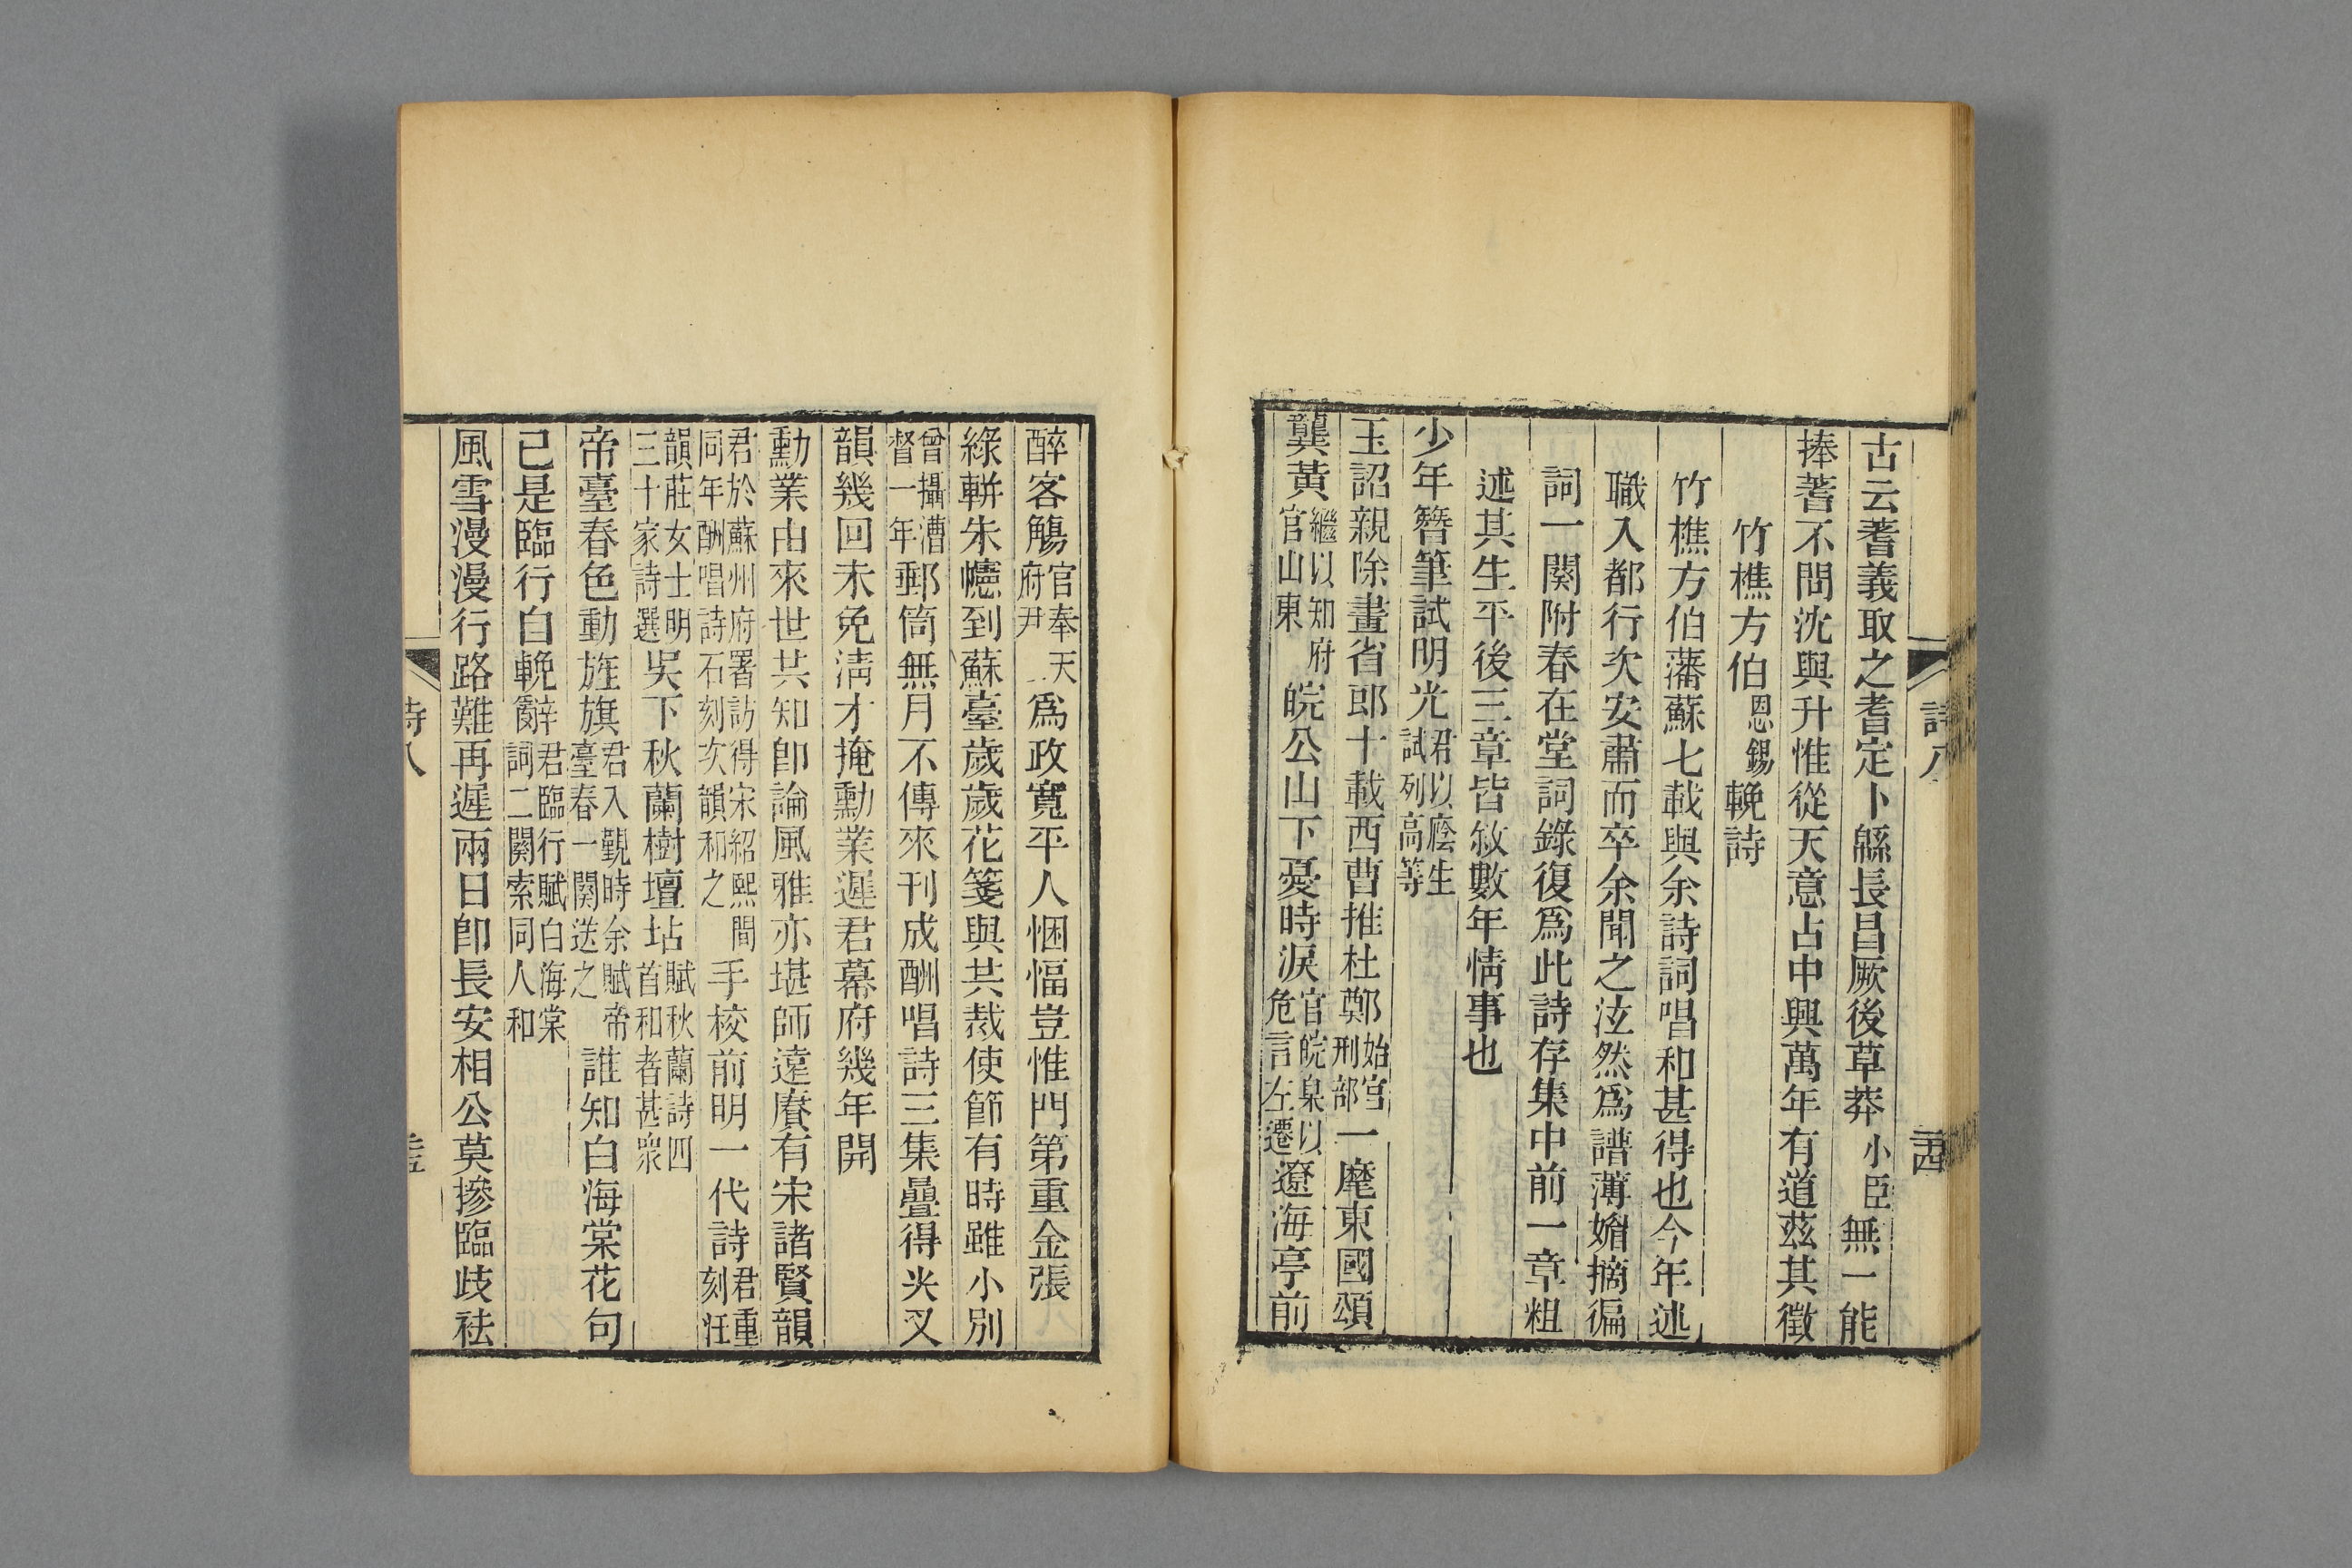 古云蓍義取之耆定卜緜長昌厥後草莽小臣無一能
捧蓍不問沈與升惟從天意占中興萬年有道茲其徵
竹樵方伯恩錫輓詩
竹樵方伯藩蘇七載與余詩詞唱和甚得也今年述
職入都行次安肅而卒余聞之泫然爲譜薄媚摘徧
詞一闋附春在堂詞錄復爲此詩存集中前一章粗
述其生平後三章皆敘數年情事也
少年簪筆試明光君以廕生試列高等
玉詔親除畫省郎十載西曹推杜鄭始官刑部一麾東國頌
龔黃繼以知府官山東皖公山下憂時淚官皖臬以危言左遷遼海亭前
詩八
西
醉客觴官奉天府尹爲政寬平人悃愊豈惟門第重金張
綠軿朱幰到蘇臺歲歲花箋與共裁使節有時雖小別
曾攝漕督一年郵筒無月不傳來刊成酬唱詩三集疊得尖叉
韻幾回未免淸才掩勳業遲君幕府幾年開
勳業由來世共知卽論風雅亦堪師遠賡有宋諸賢韻
君於蘇州府署訪得宋紹熙間同年酬唱詩石刻次韻和之手校前明一代詩君重刻汪
韻莊女士明三十家詩選吳下秋蘭樹壇坫賦秋蘭詩四首和者甚衆
帝臺春色動旌旗君入覲時余賦帝臺春一闋送之誰知白海棠花句
已是臨行自輓辭君臨行賦白海棠詞二闋索同人和
風雪漫漫行路難再遲兩日卽長安相公莫摻臨歧袪
詩八